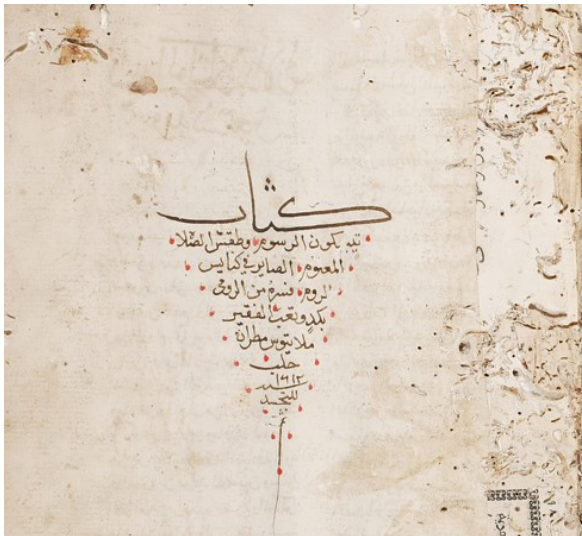 كتاب
تيبيكون الرسوم وطقس الصلا
المعلوم الصاير في كنايس
الروم فسره من الرومي
بكد وتعب الفقير
ملاتيوس مطران
حلب
سنة ١٦١٢
للتجسد